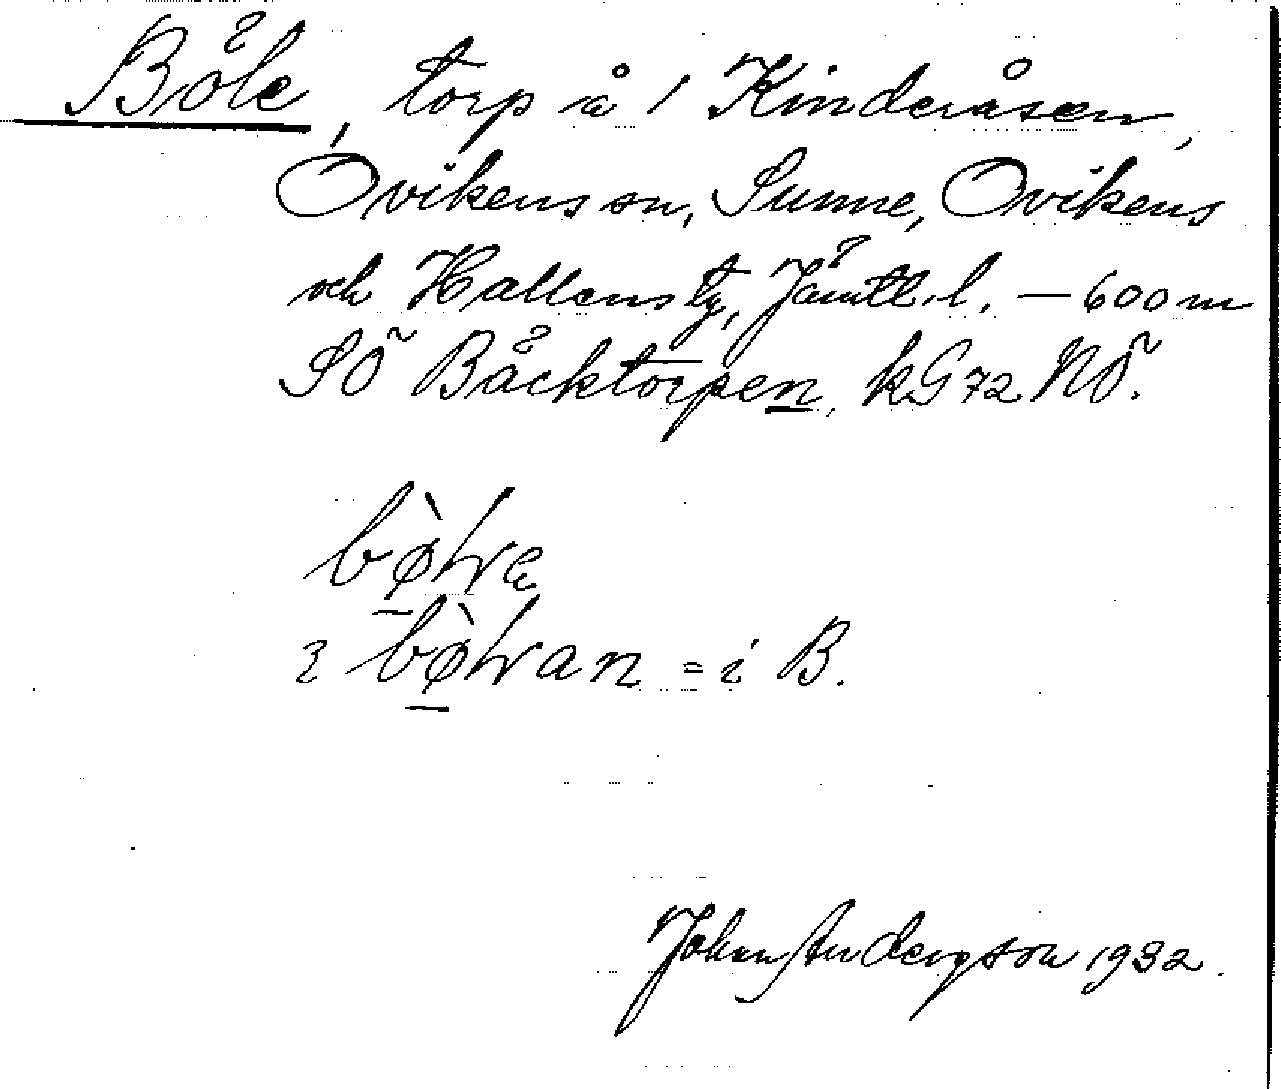 Böle, torp å 1 Kinderåsen,
Ovikens sn, Sunne, Ovikens
och Hallens tg, Jämtl. l. — 600 m
SÖ Bäcktorpen, kG72 NÖ.
= i B.
Johan Andersson 1932.